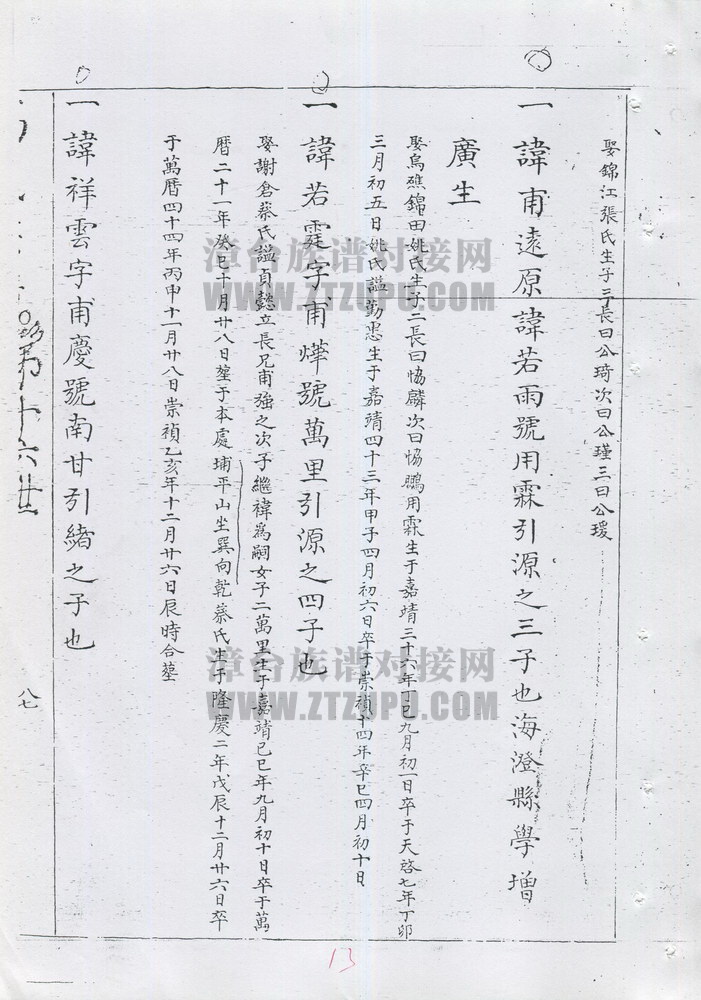 娶錦江張氏生子三長曰公琦次曰公瑾三曰公瑗
一諱甫遠原諱若雨號用霖引源之三子也海澄縣學增
廣生
娶烏礁錦田姚氏生子二長曰恊麟次曰恊鵬用霖生于嘉靖三十六年丁巳九月初一日卒于天啓七年丁卯
三月初五日姚氏謚勤惠生于嘉靖四十三年甲子四月初六日卒于崇禎十四年辛巳四月初十日
一諱若霆字甫燁號萬里引源之四子也
娶謝倉蔡氏謚貞懿立長兄甫強之次子繼禕爲嗣女子二萬里生于嘉靖己巳年九月初十日卒于萬
曆二十一年癸巳十月廿八日塟于本處埔平山坐巽向乾蔡氏生于隆慶二年戊辰十二月廿六日卒
于萬曆四十四年丙申十一月廿八日崇禎乙亥年十二月廿六日辰時合墓
一諱祥雲字甫慶號南甘引緒之子也
第十六世
八七
13
漳台族谱对接网
WWW.ZTZUPU.COM
漳台族谱对接网
WWW.ZTZUPU.COM